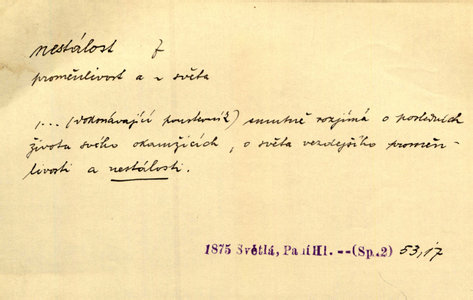 nestálost f
proměnlivost a ~ světa
... (dokonávající poustevník) smutně rozjímá o posledních
života svého okamžicích, o světa vezdejšího proměn-
livosti a nestálosti.
1875 Světlá, Paní Hl. --(Sp.2) 53,17